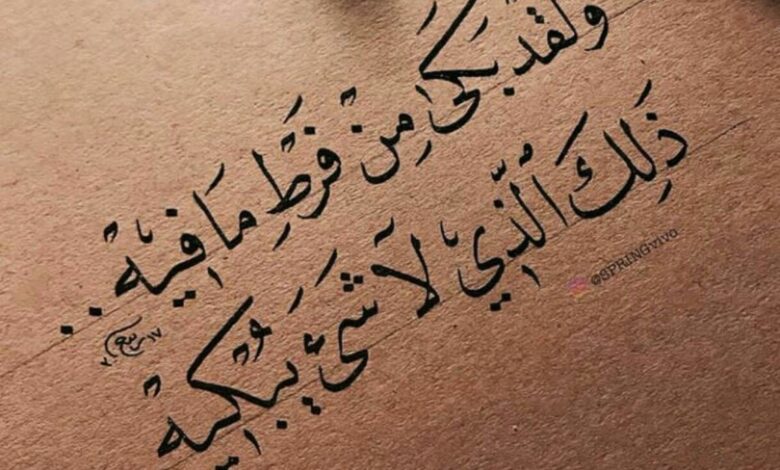 ولقد بكى من فرط ما فيه..
ذلك الذي لا شيء يبكيه
@SPRINGVIVO